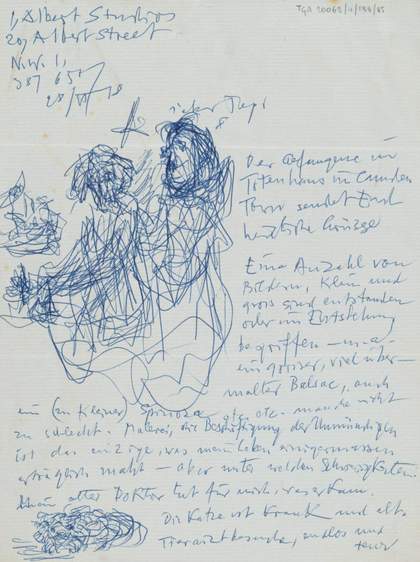 1, Albert Studios
209 Albert Street
N.W. 1,
387 6517
28/VIII/78
TGA 20062/4/184/85
Der Gefangene im
Totenhaus in Camden
Town sendet Euch
herzliche Grüsse
Eine Anzahl von
Bildern, klein und
gross sind entstanden
oder im Entstehung
begriffen –
ein grosser, viel über-
malter Balsac, auch
ein (ein kleiner) Spinoza etc. etc. manche nicht
zu schlecht. Malerei, die Beschäftigung der Unmündigen
ist das einzige, was mein Leben einigermassen
erträglich macht – aber unter welchen Schwierigkeiten.
Mein alter Doktor tut für mich, was er kann.
Die Katze ist krank und alt.
Tierarztbesuche, endlos und
teuer